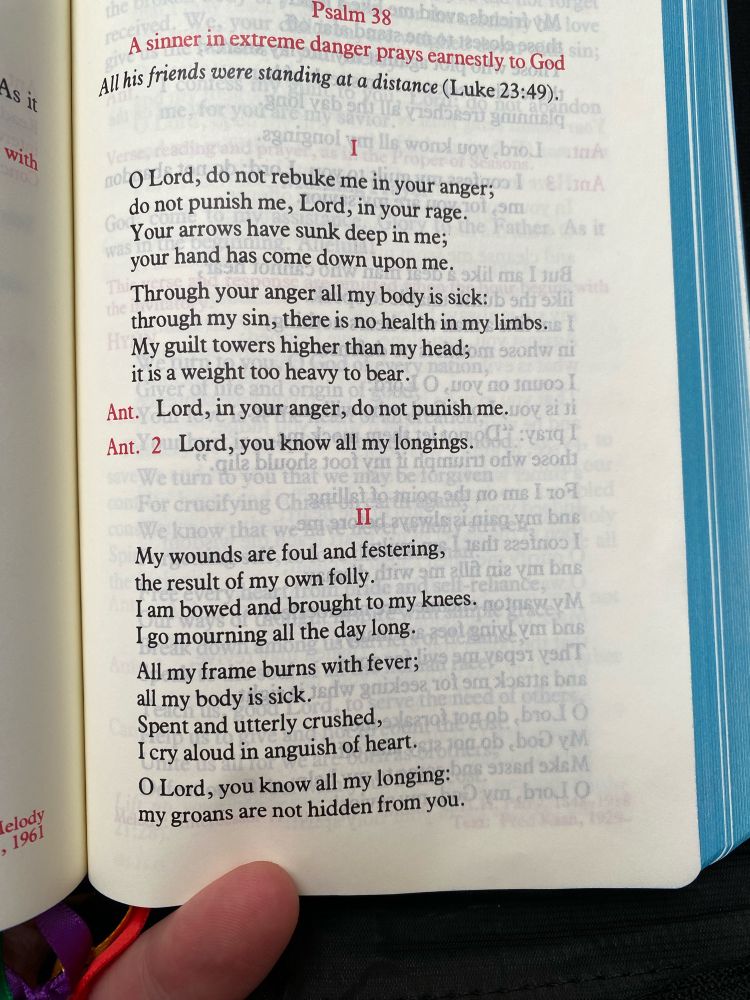 As it
with
Melody
, 1961
Psalm 38
A sinner in extreme danger prays earnestly to God
All his friends were standing at a distance (Luke 23:49).
I
O Lord, do not rebuke me in your anger;
do not punish me, Lord, in your rage.
Your arrows have sunk deep in me;
your hand has come down upon me.
Through your anger all my body is sick:
through my sin, there is no health in my limbs.
My guilt towers higher than my head;
it is a weight too heavy to bear.
Ant. Lord, in your anger, do not punish me.
Ant. 2 Lord, you know all my longings.
II
My wounds are foul and festering,
the result of my own folly.
I am bowed and brought to my knees.
I go mourning all the day long.
All my frame burns with fever;
all my body is sick.
Spent and utterly crushed,
I cry aloud in anguish of heart.
O Lord, you know all my longing:
my groans are not hidden from you.